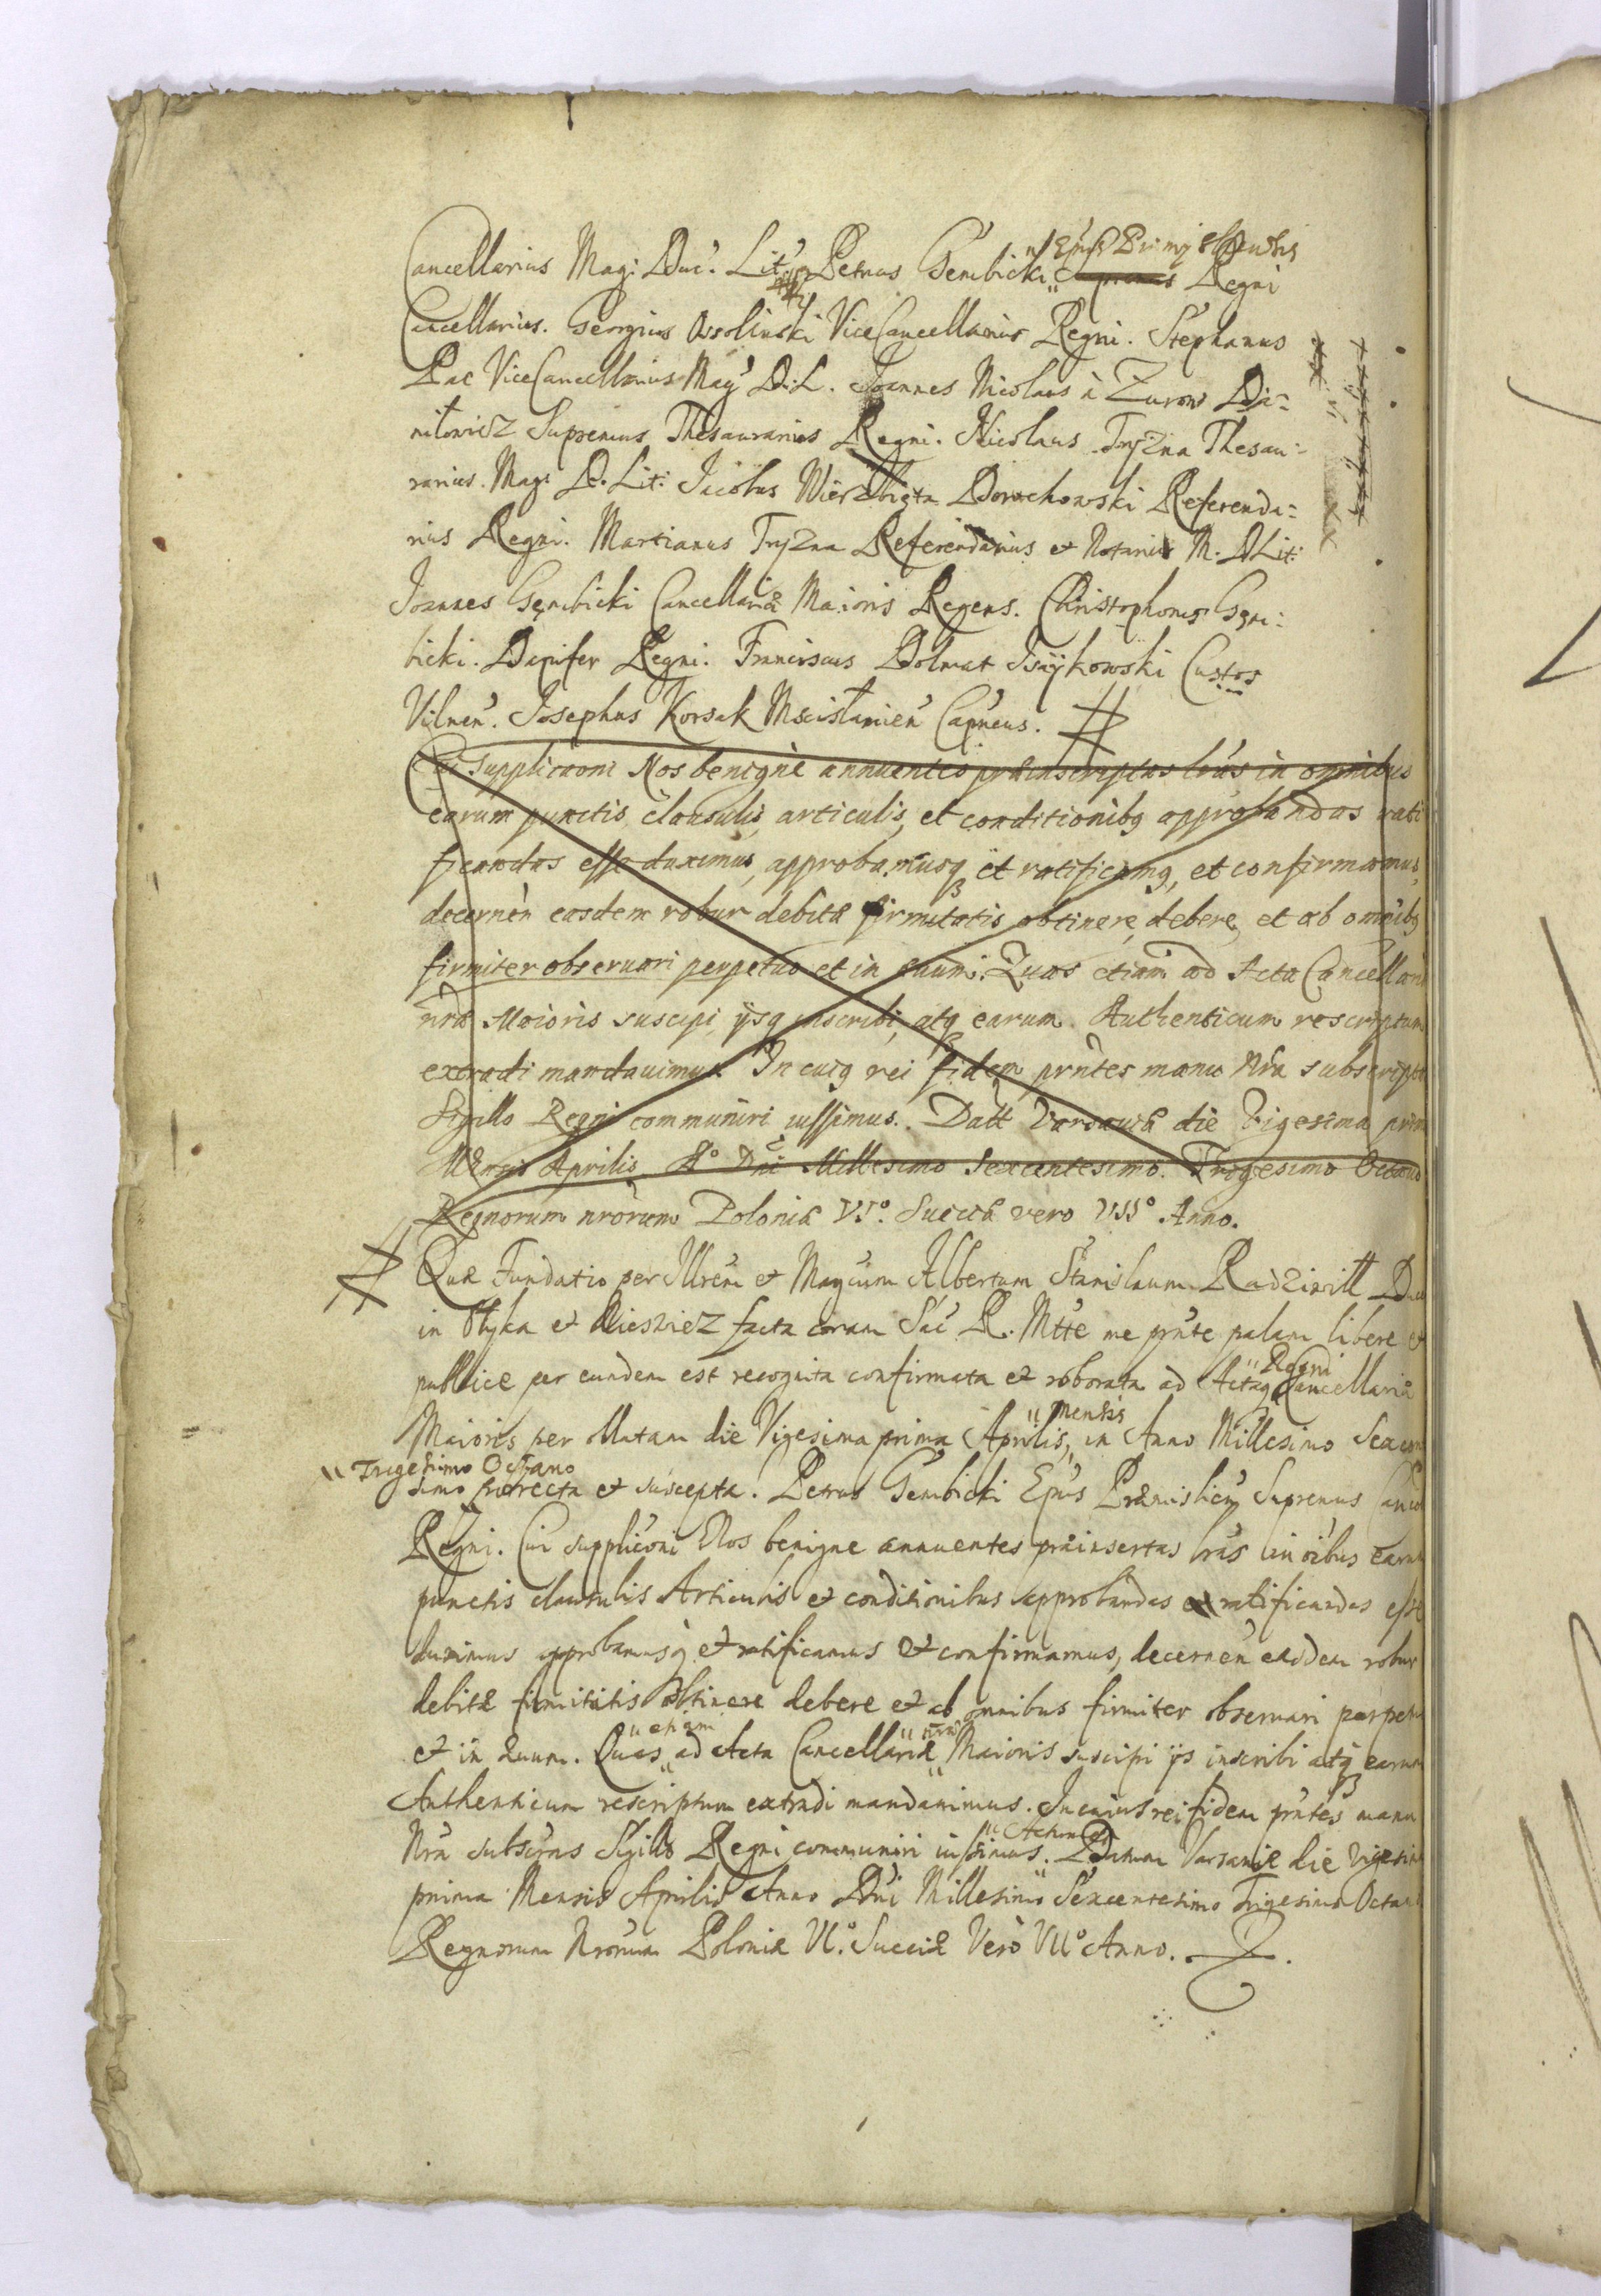 Cancellarius Mag: Duc: Lit: Petrus Gembicki Epus Regni
Cancellarius. Georgius Ossolinski ViceCancellarius Regni. Stephanus
Pac ViceCancellarius Mag: D: L. Joannes Nicolaus à Zurow Da=
nitowicz Supremus Thesaurarius Regni. Nicolaus Tryzna Thesau=
rarius. Mag: D. Lit: Jacobus Wierzbięta Dorochowski Referenda=
rius Regni. Martianus Tryzna Referendarius et Notarius M. D Lit:
Joannes Gembicki Cancellariæ Maioris Regens. Christophorus Gem=
bicki. Dapifer Regni. Franciscus Dolmat Isaÿkowski Custos
Vilnen. Josephus Korsak Mscislauien Capneus. #
Cui Supplicaoni Nos benignè annuentes præinscriptas lras in omnibus
earum punctis, clausulis, articulis, et conditionibq approbandas rati
ficandas esse duximus, approbamusq et ratificamq, et confirmamus,
decernen easdem robur debitæ firmitatis obtinere, debere, et ab omnibq
firmiter obseruari perpetuo et in æuum. Quas etiam ad Acta Cancellari
nræ Maioris suscipi, ÿsq inscribi, atq earum Authenticum rescriptum
extradi mandauimus. In cuiq rei fidem prntes manu Nra subscript
Sigillo Regni communiri iussimus. Datt Varsauiæ die Vigesima prim
Mensis Aprilis A° Dni Millesimo Sexcentesimo Trigesimo Octauo
Regnorum nrorum Poloniæ VI°. Sueciæ vero VII°. Anno.
# Quæ Fundatio per Illrem et Magcum Albertum Stanislaum Radziwitt Du
in Otyka et Niesziez facta coram Sac R. Mtte me prnte palam libere et
publice per eundem est recognita confirmata et roborata ad Actaq Regni Cancellariæ
Maioris per oblatam die Vigesima prima Aprilis, mensis in Anno Millesimo Sexcen
Trigesimo Octauo
simo porrecta et suscepta. Petrus Gembicki Epus Præmislien Supremus Canc
Regni. Cui suppliconi Nos benigne annuentes præinsertas lras in oibus earum
punctis clausulis Articulis et conditionibus approbandas et ratificandas esse
duximus approbamusq et ratificamus et confirmamus, decernen easdem robur
debitæ firmitatis obtinere debere et ab omnibus firmiter obseruari perpetu
et in æuum. Quas etiam ad Acta Cancellariæ nræ Maioris suscipi ijs inscribi atq earum
Authenticum rescriptum extradi mandauimus. In cuius rei fidem prntes manu
Nra Sigillo Regni communiri iussimus. Actum Datum Varsauiæ die Vigesim
prima Mensis Aprilis Anno Dni Millesimo Sexcentesimo Trigesimo Octau
Regnorum Nrorum Poloniæ VI°. Sueciæ Vero VII° Anno.